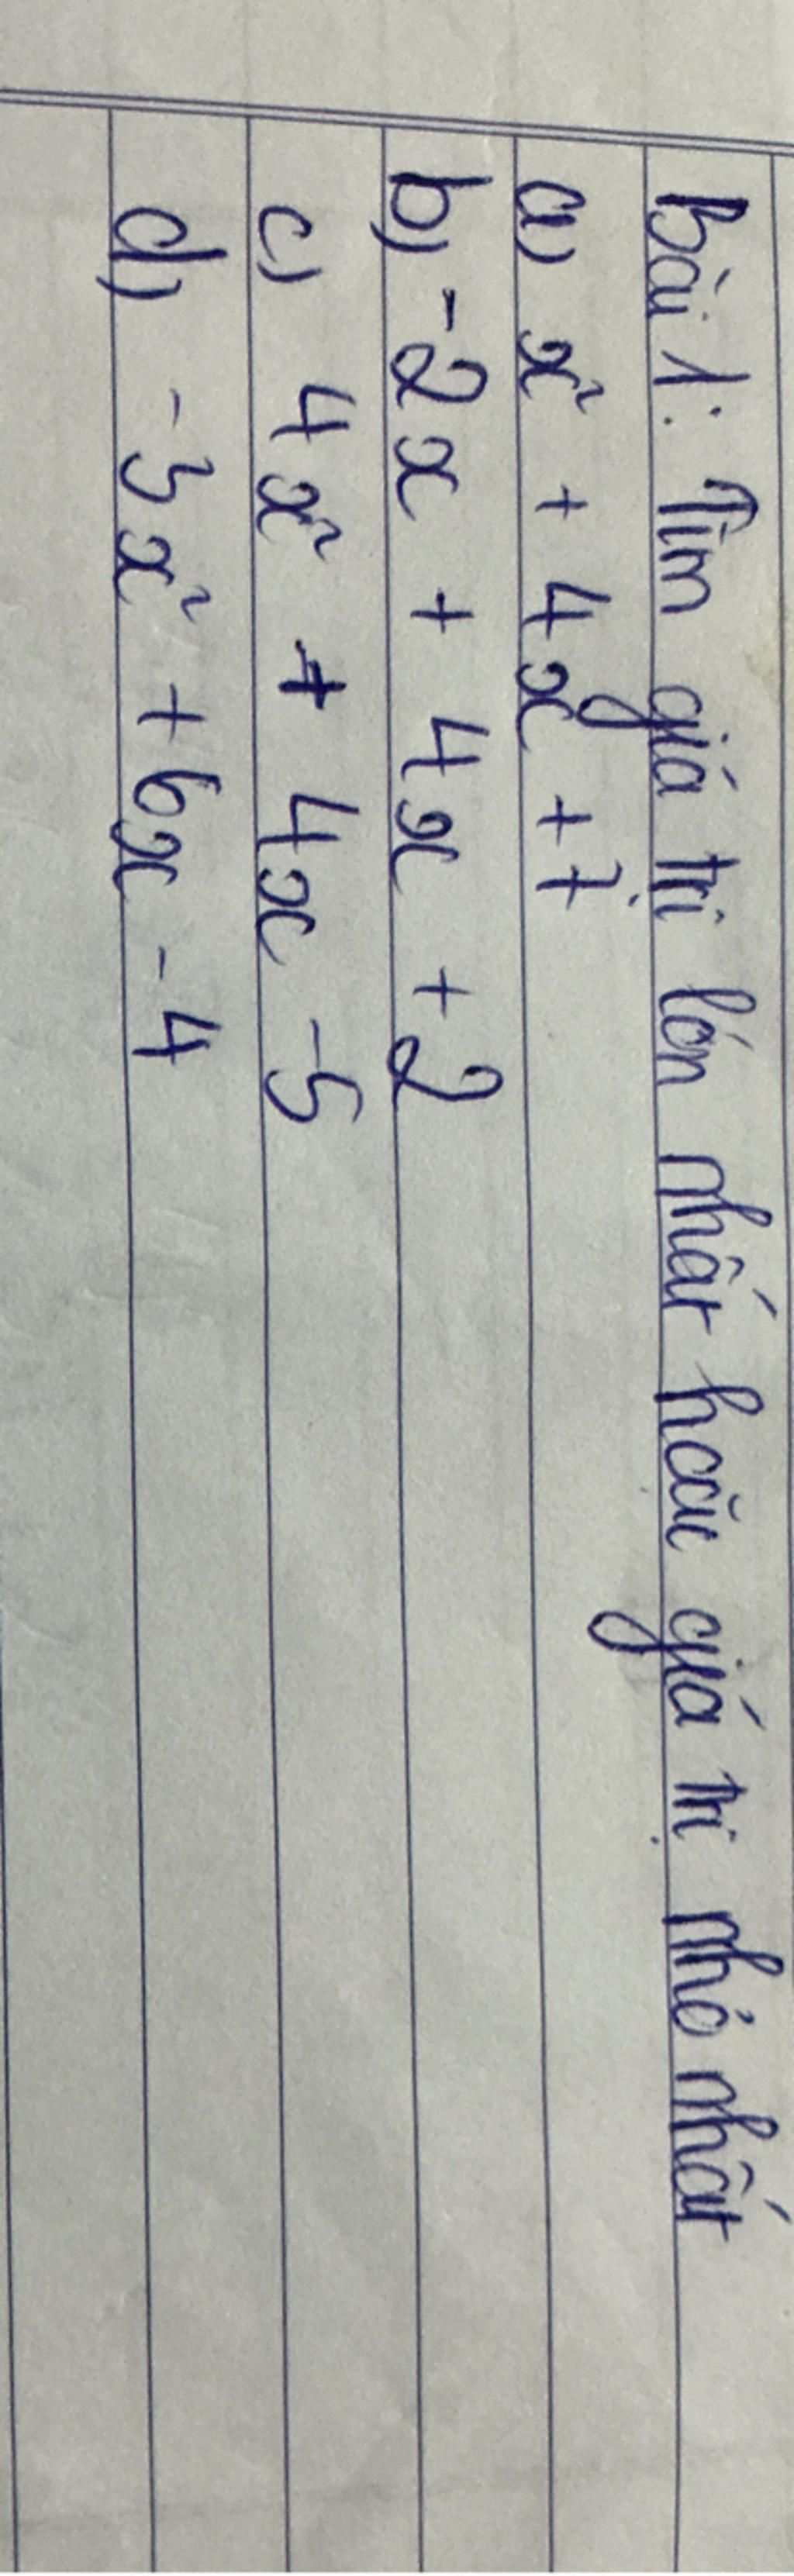 Bài 1: Tìm giá trị lớn nhất hoặc giá trị nhỏ nhất
a) x² + 4x + 7
b) -2x + 4x + 2
c) 4x² + 4x - 5
d) -3x² + 6x - 4